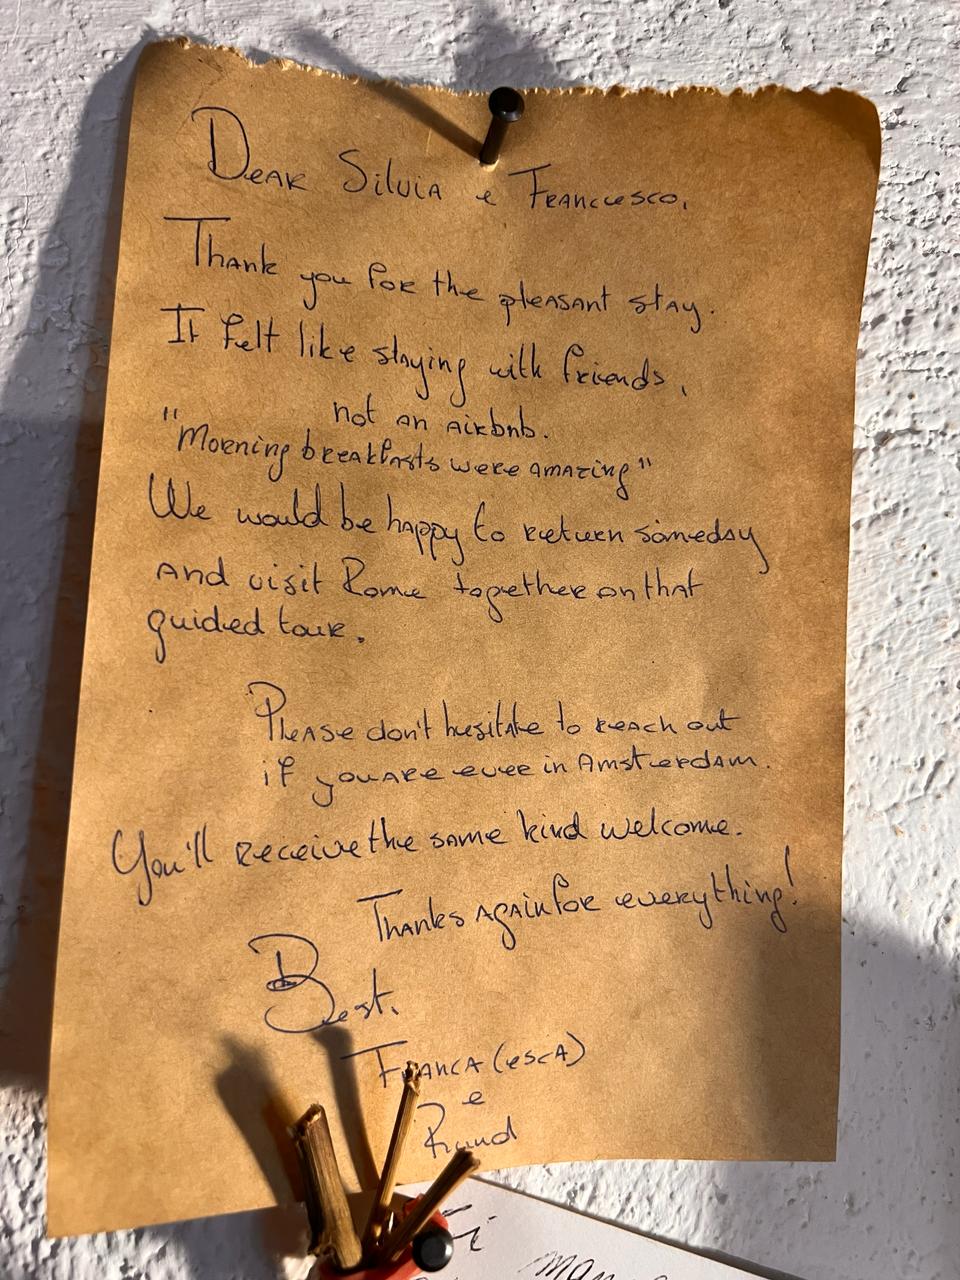 Dear Silvia e Francesco,
Thank you for the pleasant stay.
It felt like staying with friends,
not an airbnb.
"Morning breakfasts were amazing"
We would be happy to return someday
and visit Rome together on that
guided tour.
Please don't hesitate to reach out
if you are ever in Amsterdam.
You'll receive the same kind welcome.
Thanks again for everything!
Best,
Franca (esca)
e
Ruud